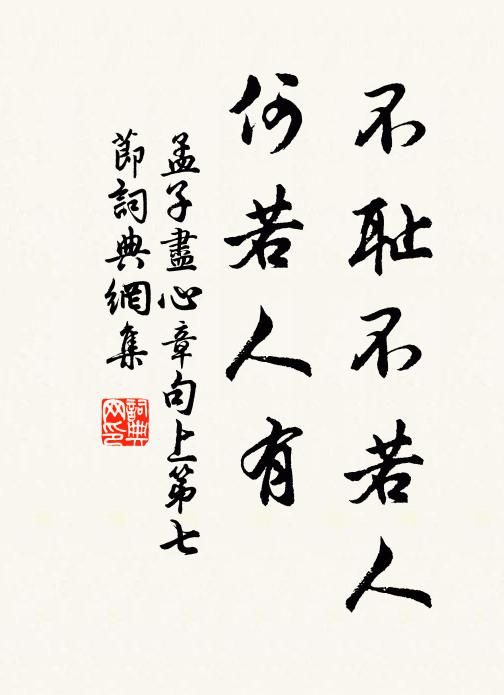 不耻不若人
何若人有
孟子盡心章句上第七
節詞典網集
詞典
网印